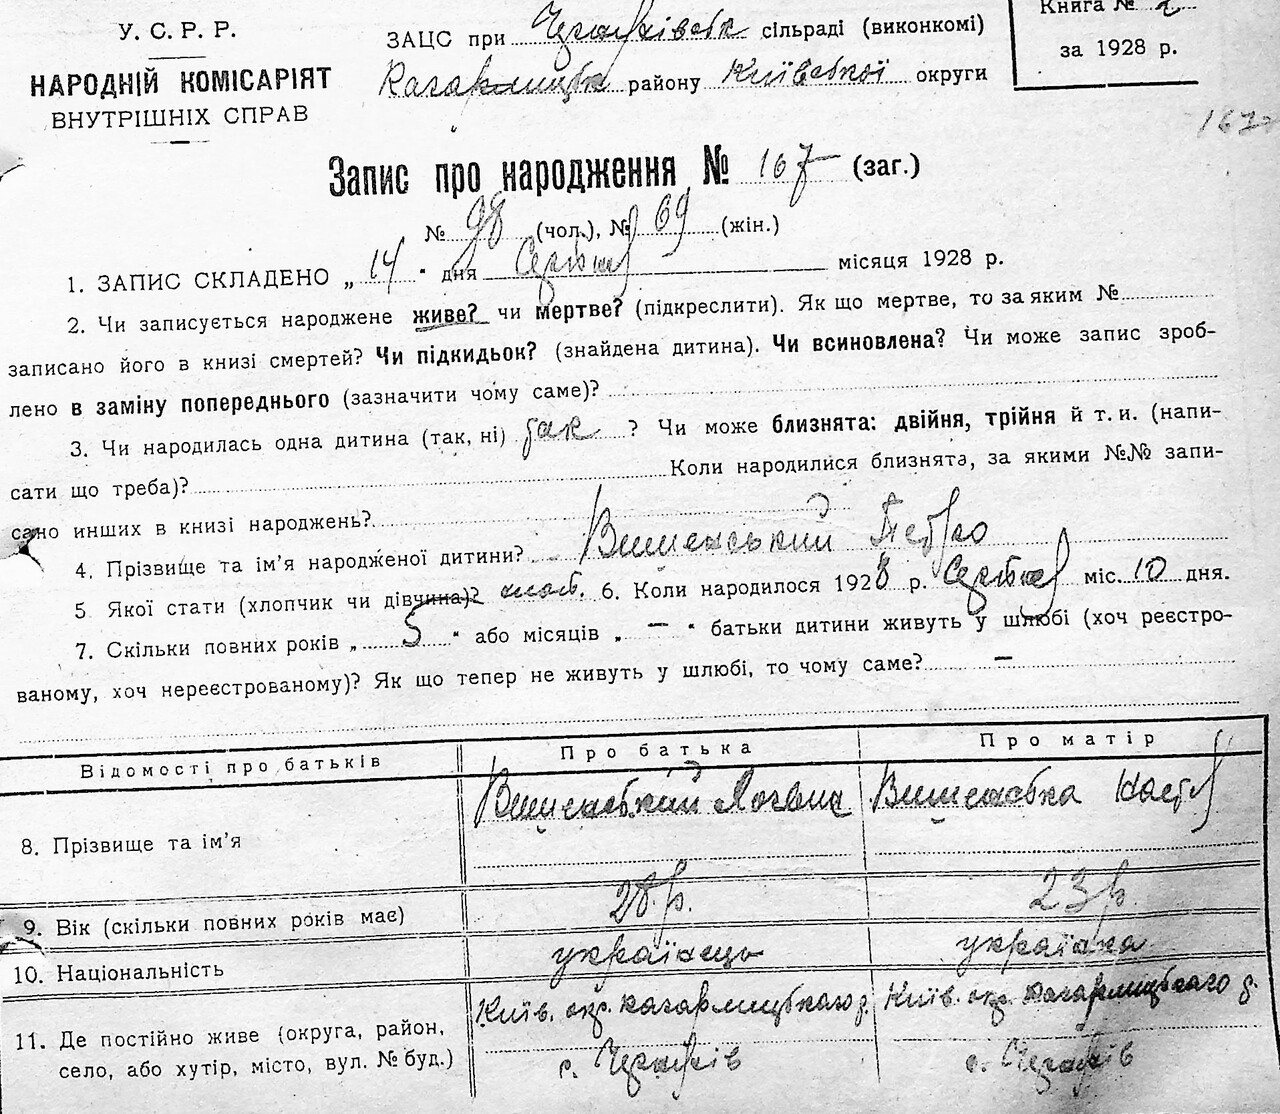 У. С. Р. Р.
НАРОДНІЙ КОМІСАРІЯТ
ВНУТРІШНІХ СПРАВ
ЗАЦС при сільраді (виконкомі)
Кагарлицьк району Київської округи
Книга №
за 1928 р.
167
Запис про народження № 167 (заг.)
№ 98 (чол.), № 69 (жін.)
1. ЗАПИС СКЛАДЕНО „ 14 “ дня Серпня місяця 1928 р.
2. Чи записується народжене живе? чи мертве? (підкреслити). Як що мертве, то за яким №
записано його в книзі смертей? Чи підкидьок? (знайдена дитина). Чи всиновлена? Чи може запис зроб-
лено в заміну попереднього (зазначити чому саме)?
3. Чи народилась одна дитина (так, ні) так ? Чи може близнята: двійня, трійня й т. и. (напи-
сати що треба)? Коли народилися близнята, за якими №№ запи-
сано инших в книзі народжень?
4. Прізвище та ім’я народженої дитини? Вишенський Петро
5 Якої стати (хлопчик чи дівчина)? 6. Коли народилося 1928 р. Серпня міс. 10 дня.
7. Скільки повних років „ 5 “ або місяців „ — “ батьки дитини живуть у шлюбі (хоч реєстро-
ваному, хоч нереєстрованому)? Як що тепер не живуть у шлюбі, то чому саме? —
Відомості про батьків Про батька Про матір
8. Прізвище та ім’я Вишенський Логвин Вишенська Настя
9. Вік (скільки повних років має) 28 р. 23 р.
10. Національність українець українка
11. Де постійно живе (округа, район, Київ. окр. Кагарлицького р. Київ. окр. Кагарлицького р.
село, або хутір, місто, вул. № буд.) с. с.